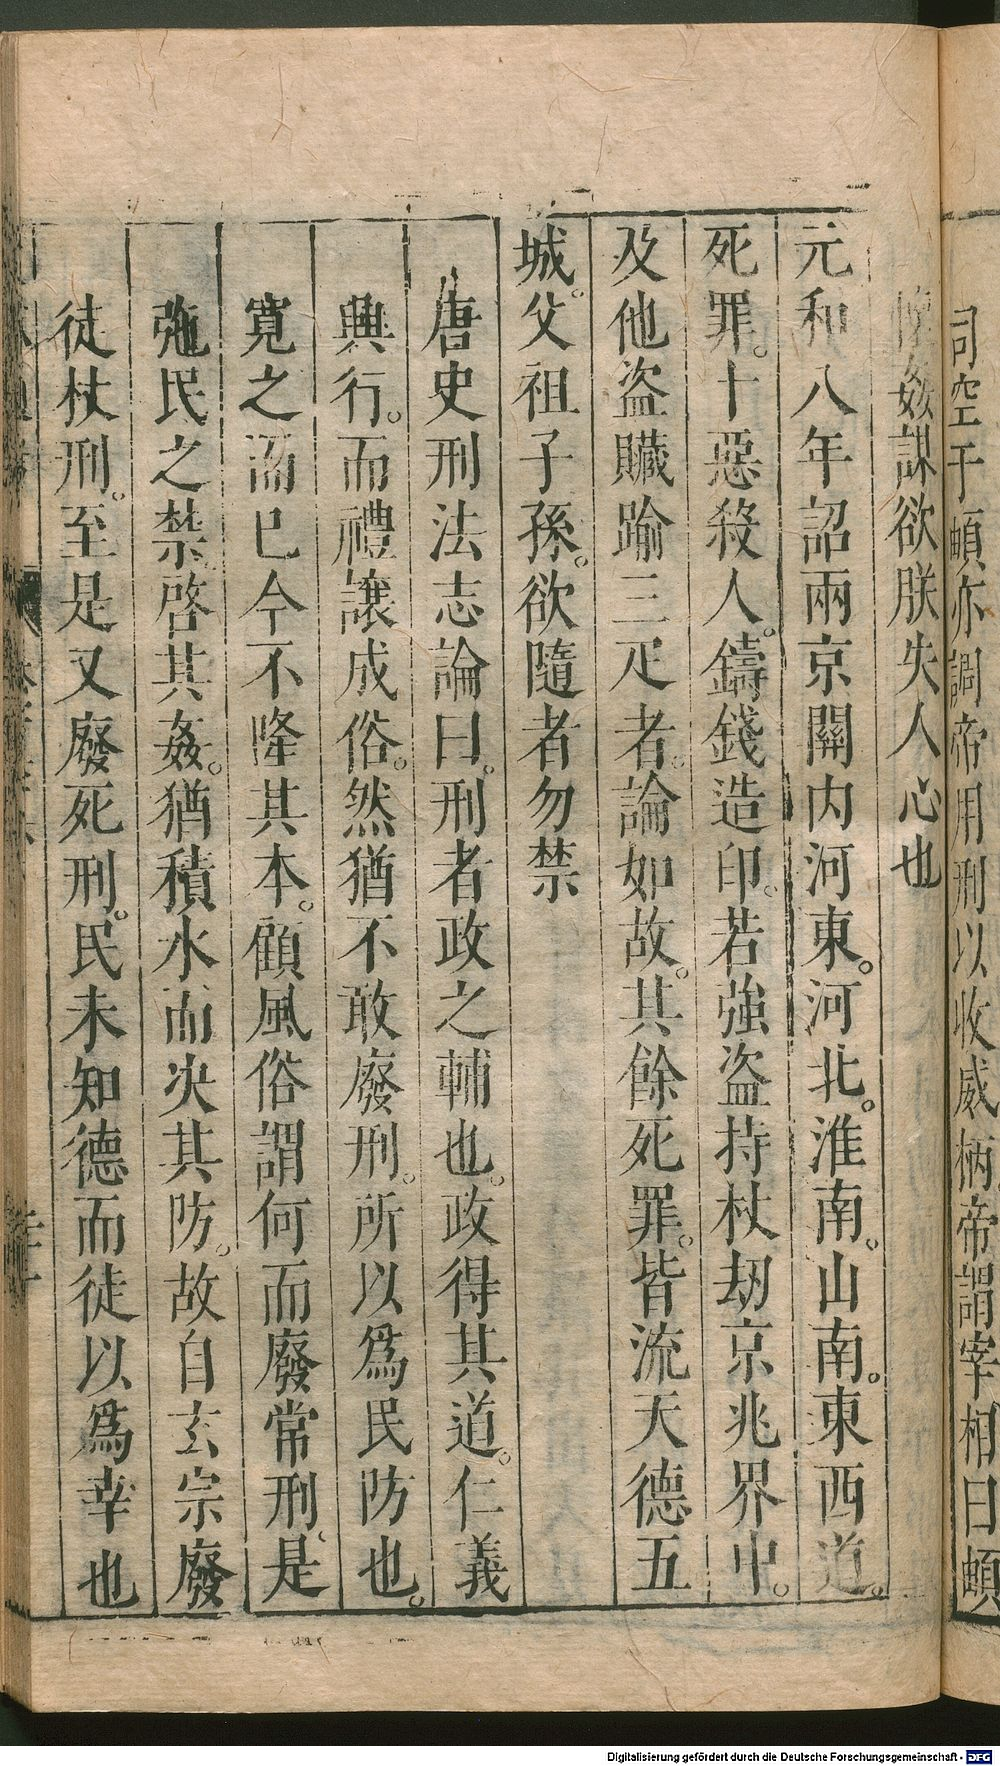 司空于頔亦調帝用刑以收威柄帝謂宰相曰頔
懷姦謀欲朕失人心也
元和八年詔兩京關内河東。河北。淮南。山南。東西道。
死罪。十惡殺人。鑄錢造印。若強盗持杖刼京兆界中。
及他盗贓踰三疋者。論如故。其餘死罪。皆流天德五
城。父祖子孫。欲隨者勿禁
唐史刑法志論曰。刑者政之輔也。政得其道。仁義
興行。而禮讓成俗。然猶不敢廢刑。所以爲民防也。
寛之而已今不隆其本。顧風俗謂何而廢常刑。是
弛民之禁。啓其姦。猶積水而决其防。故自玄宗廢
徒杖刑。至是又廢死刑。民未知德而徒以爲幸也
Digitalisierung gefördert durch die Deutsche Forschungsgemeinschaft - DFG